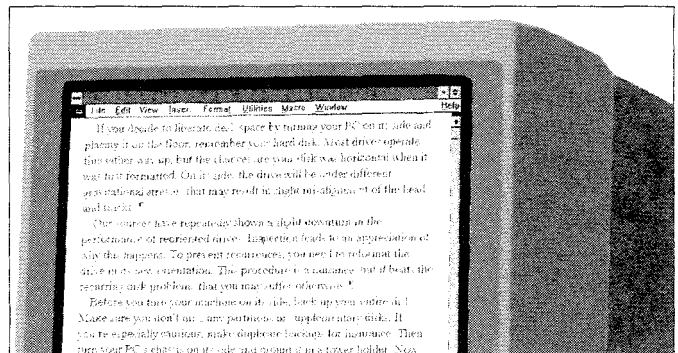 File Edit View Layer Format Utilities Macro Window Help
If you decide to liberate desk space by turning your PC on its side and
placing it on the floor, remember your hard disk. Most drives operate
this either way up, but the chances are your disk was horizontal when it
was first formatted. On its side, the drive will be under different
gravitational stresses that may result in slight misalignment of the head
and tracks. ¶
Our sources have repeatedly shown a slight downturn in the
performance of reoriented drives. Inspection leads to an appreciation of
why this happens. To prevent recurrences, you need to reformat the
drive in its new orientation. The procedure is a nuisance, but it beats the
recurring disk problems that you may suffer otherwise. ¶
Before you turn your machine on its side, back up your entire disk.
Make sure you don't miss any partitions or supplementary disks. If
you're especially cautious, make duplicate backups for insurance. Then
turn your PC's chassis on its side and mount it in a tower holder. Now